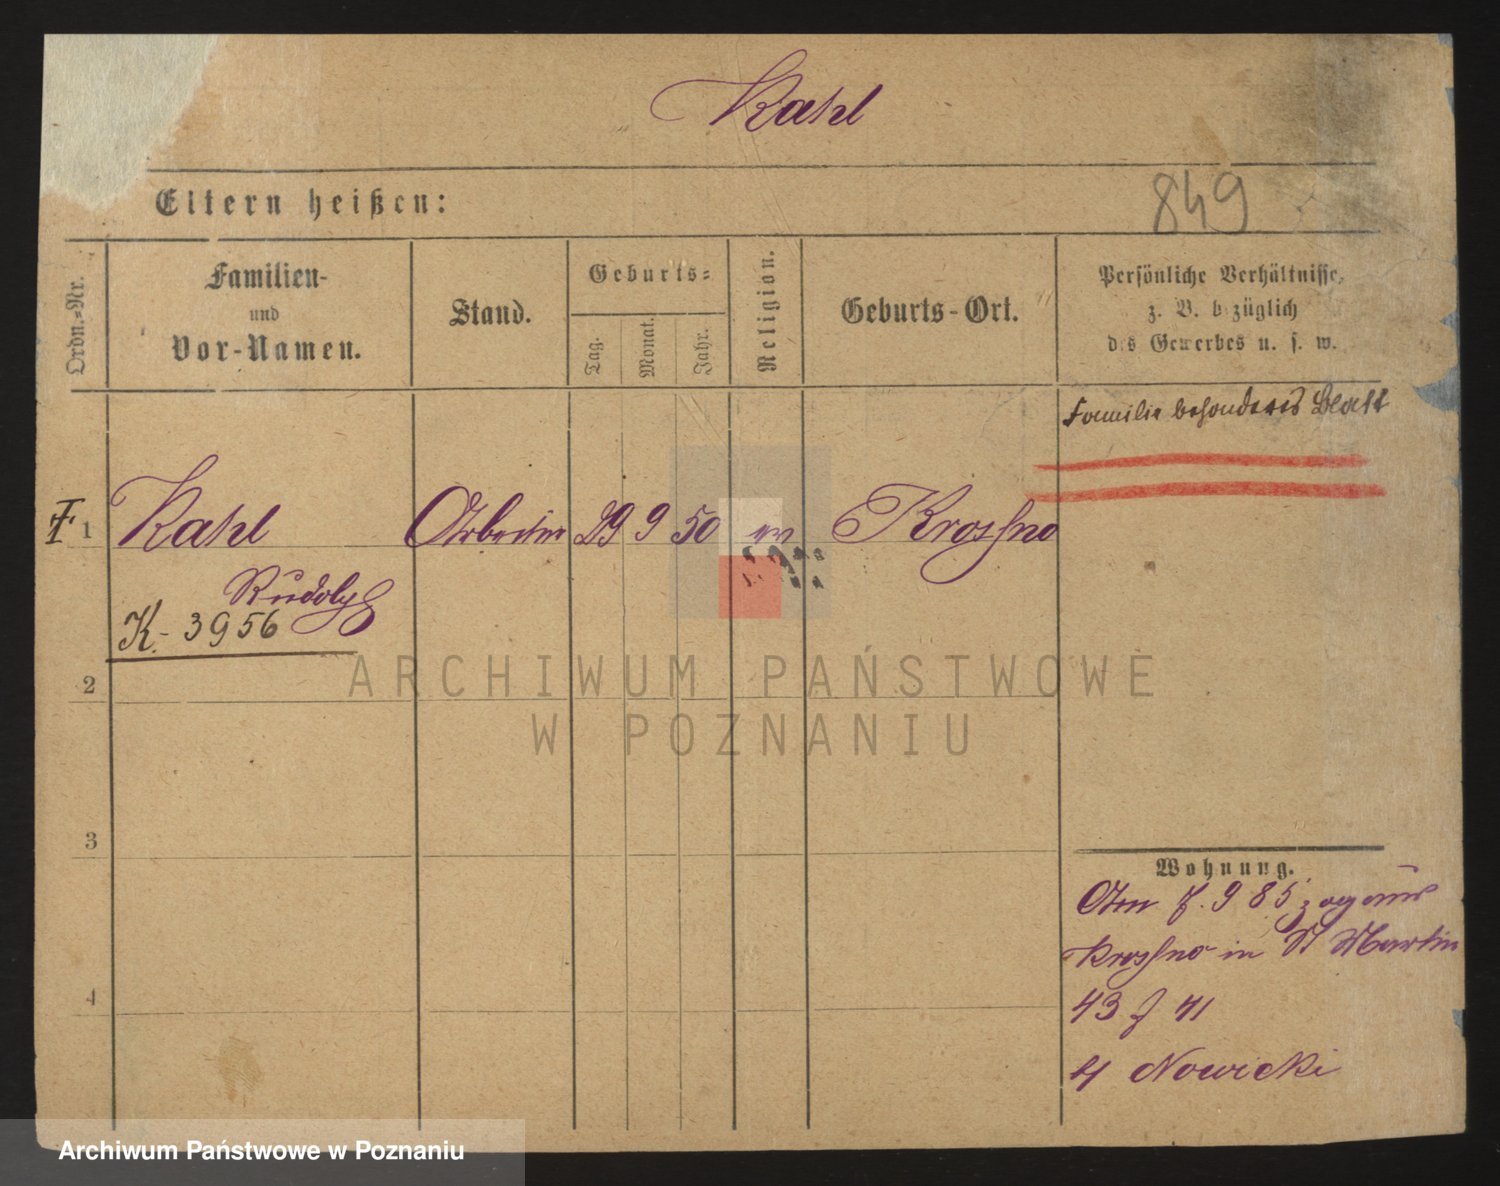 Kahl
Eltern heißen:
849
Ordn.-Nr.
Familien-
und
Vor-Namen.
Stand.
Geburts-
Tag.
Monat.
Jahr.
Religion.
Geburts-Ort.
Persönliche Verhältnisse,
z. B. bezüglich
des Gewerbes u. s. w.
Familie besonderes Blatt
1 Kahl Arbeiter 29 9 50 ev Krosno
Rudolf
K. 3956
2
3
4
Wohnung.
9 85 zog aus
Krosno in St Martin
43
Nowicki
ARCHIWUM PAŃSTWOWE
W POZNANIU
Archiwum Państwowe w Poznaniu